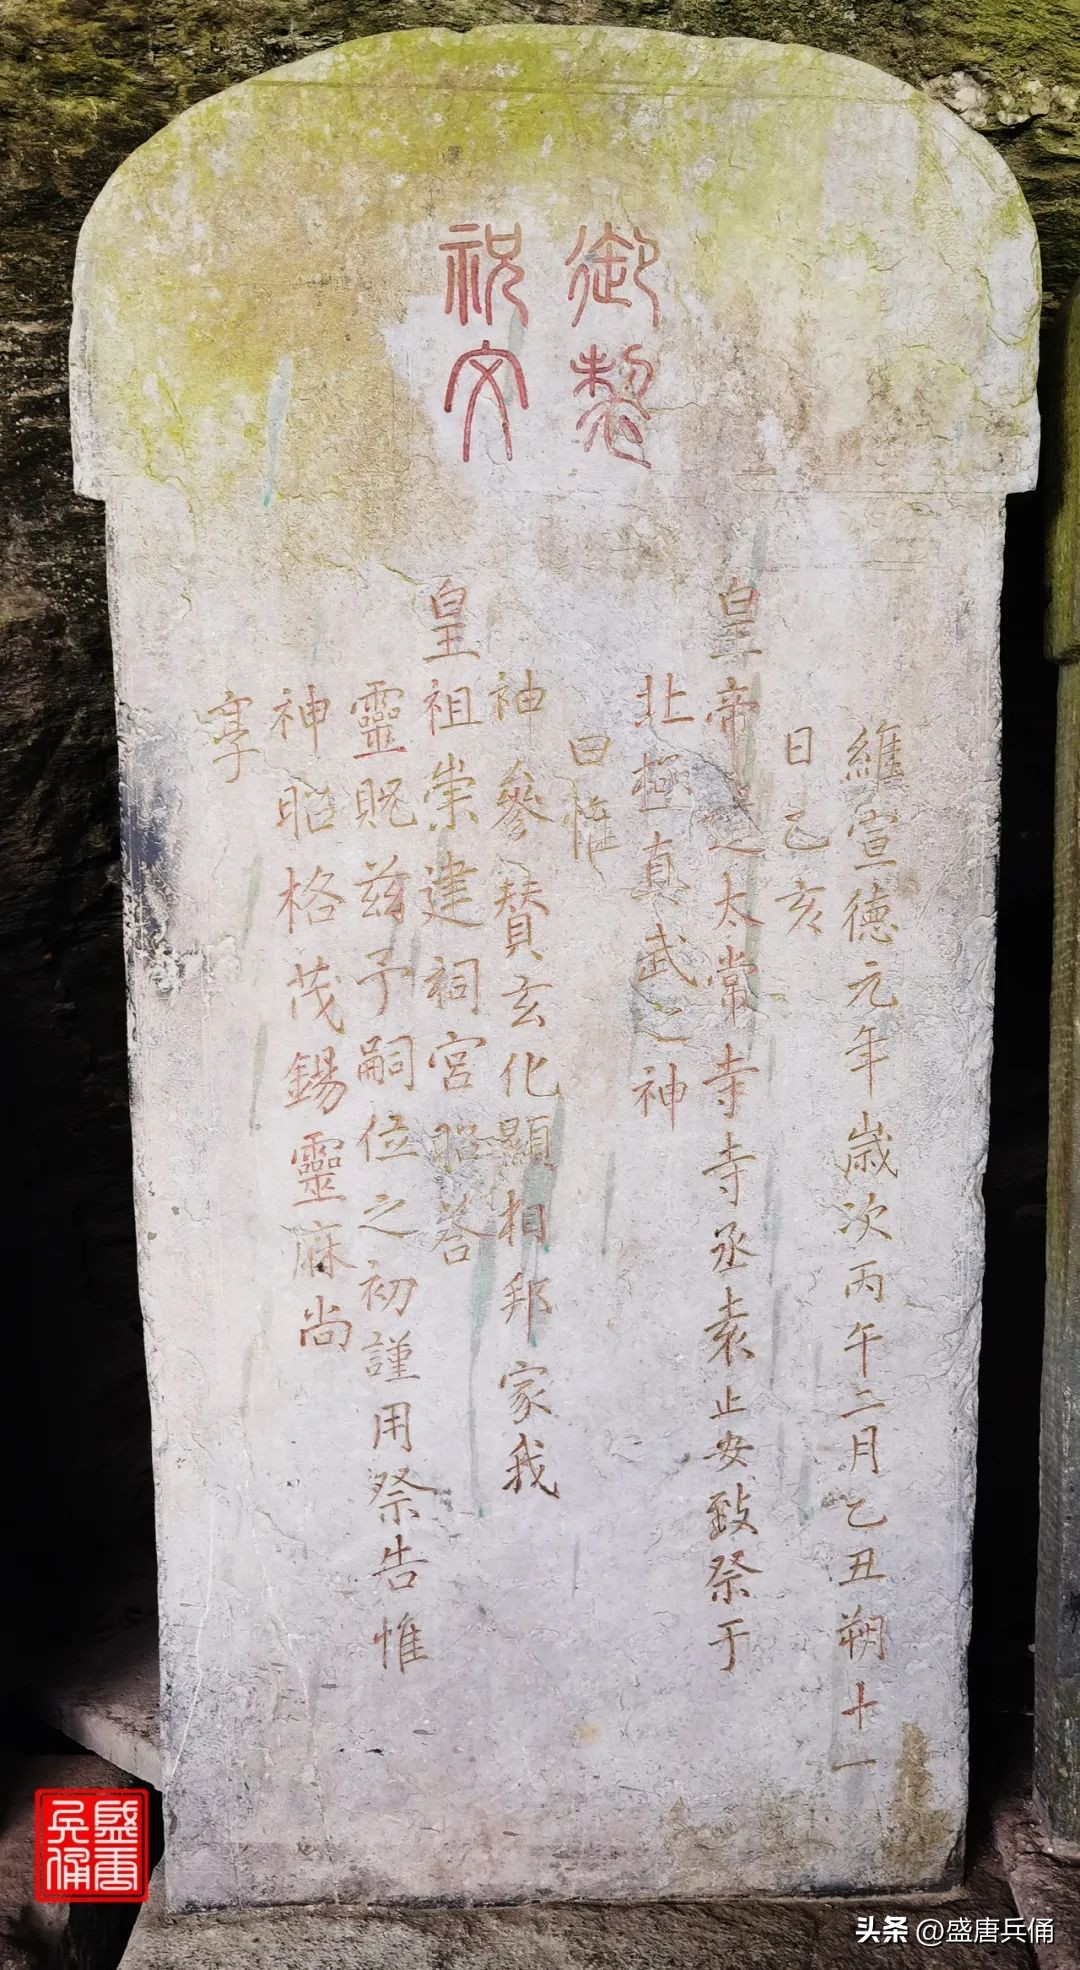 御製
祝文
維宣德元年歲次丙午二月乙丑朔十一
日乙亥
皇帝遣太常寺寺丞袁止安致祭于
北極真武之神
曰惟
神參贊玄化顯相邦家我
皇祖崇建祠宮昭荅
靈貺茲予嗣位之初謹用祭告惟
神昭格茂錫靈庥尚
享
盛唐
兵俑
头条 @盛唐兵俑